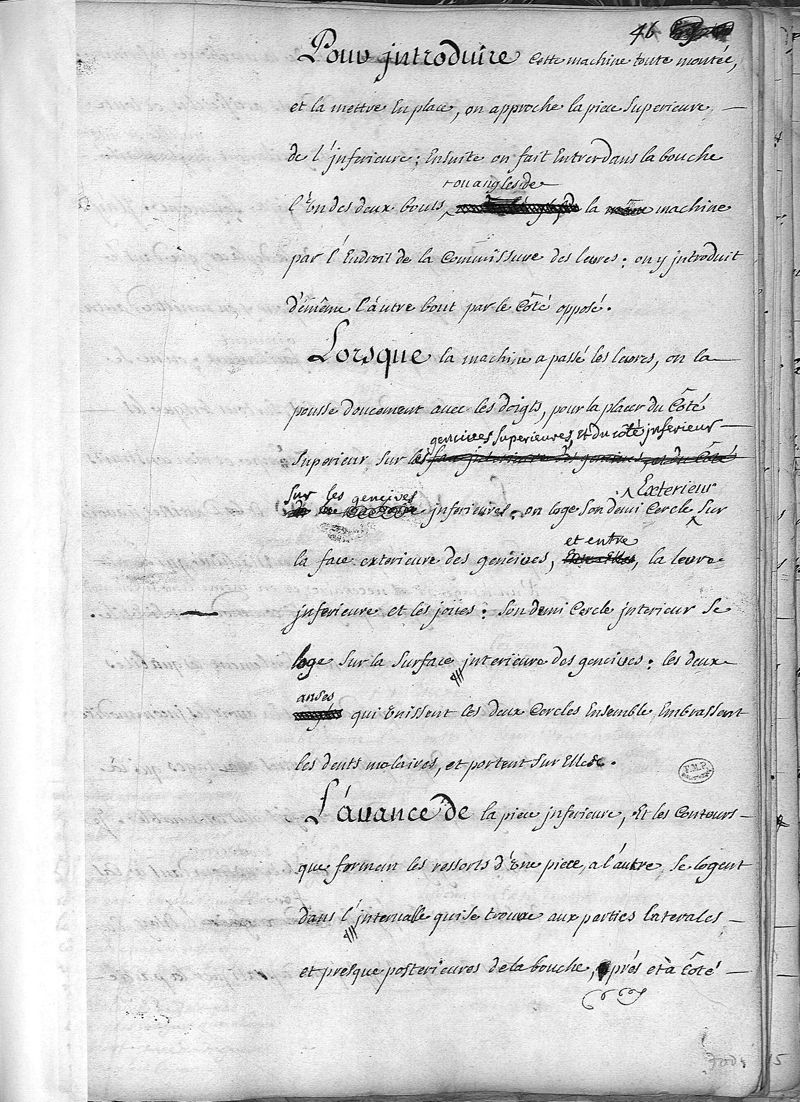 46
Pour introduire Cette machine toute montée,
et la mettre En place, on approche la piece Superieure
de l'inferieure; Ensuite on fait Entrer dans la bouche
ou angles de
l'un des deux bouts, la machine
par l'Endroit de la Commissure des levres: on y introduit
d'éméme l'autre bout par le Côté opposé.
Lorsque la machine a passé les levres, on la
pousse doucement avec les doigts, pour la placer du Côté
gencives superieures, et du côté inferieur
Superieur Sur les face interieure des gencives, et du Côté
Sur les gencives Exterieur
inferieures; on loge Son demi Cercle Sur
et entre
la face exterieure des gencives, Entre Elles, la levre
inferieure et les joües: Son demi Cercle interieur Se
loge Sur la Surface interieure des gencives: les deux
anses
qui Unissent les deux Cercles Ensemble, Embrassent
les dents molaires, et portent Sur Elles.
L'avance de la piece inferieure, Et les Contours
que forment les ressorts d'une piece, a l'autre, Se logent
dans l'intervalle qui se trouve aux parties laterales
et presque posterieures de la bouche, aprés et à Côté